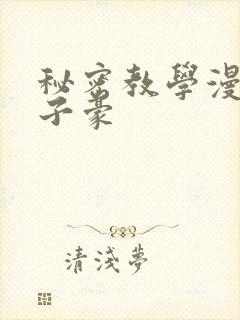 秘密教學漫
子豪
清淺夢